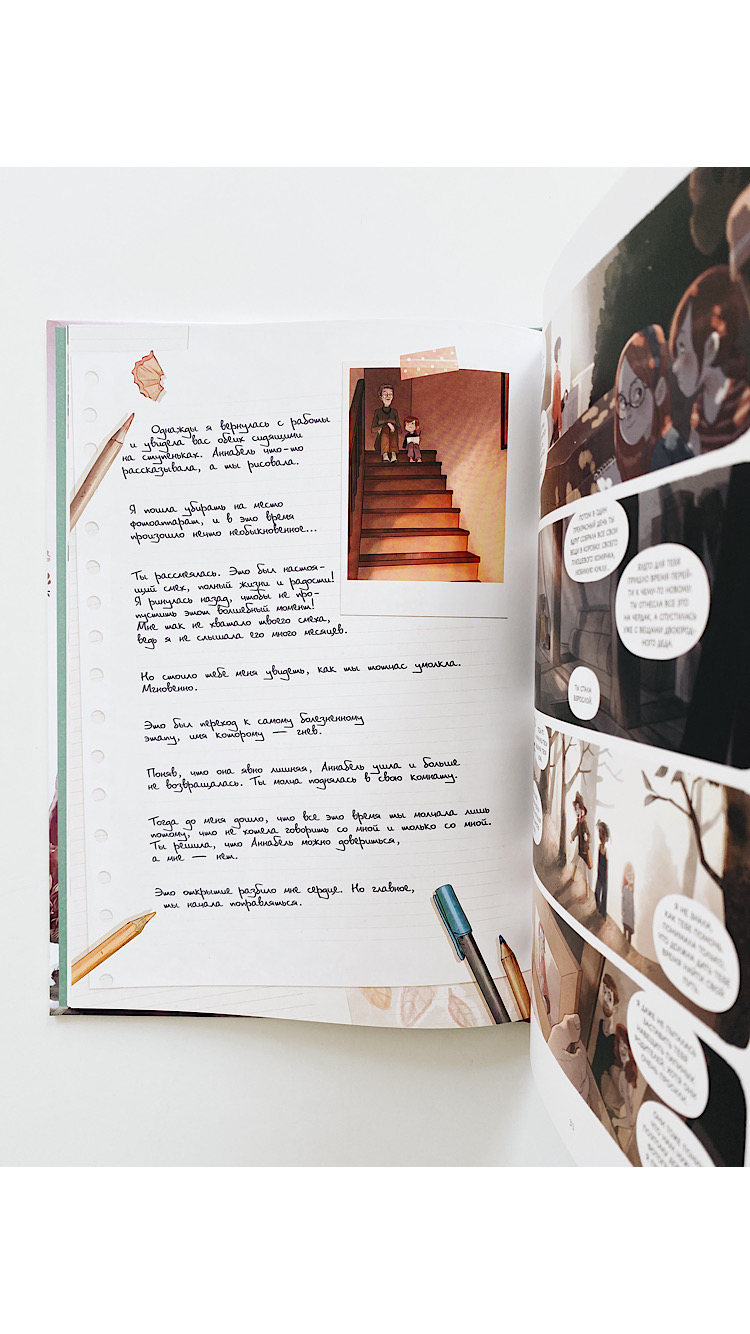 Однажды я вернулась с работы
и увидела вас обеих сидящими
на ступеньках. Аннабель что-то
рассказывала, а ты рисовала.
Я пошла убирать на место
фотоаппарат, и в это время
произошло нечто необыкновенное...
Ты рассмеялась. Это был настоя-
щий смех, полный жизни и радости!
Я ринулась назад, чтобы не про-
пустить этот волшебный момент!
Мне так не хватало твоего смеха,
ведь я не слышала его много месяцев.
Но стоило тебе меня увидеть, как ты тотчас умолкла.
Мгновенно.
Это был переход к самому болезненному
этапу, имя которому — гнев.
Поняв, что она явно лишняя, Аннабель ушла и больше
не возвращалась. Ты молча поднялась в свою комнату.
Тогда до меня дошло, что все это время ты молчала лишь
потому, что не хотела говорить со мной и только со мной.
Ты решила, что Аннабель можно довериться,
а мне — нет.
Это открытие разбило мне сердце. Но главное,
ты начала поправляться.
Потом в один
прекрасный день ты
вдруг собрала все свои
вещи в коробки: своего
плюшевого
Будто для тебя
пришло время перей-
ти к чему-то новому.
Ты отнесла все это
на чердак, а спустилась
уже с вещами двоюрод-
ного деда.
Ты стала
взрослой.
Я не знала,
как тебе помочь,
понимала только,
что должна дать тебе
время найти свой
путь.
Я даже не пыталась
заставить тебя
навещать
родителей, хотя они
очень просили.
Они тоже